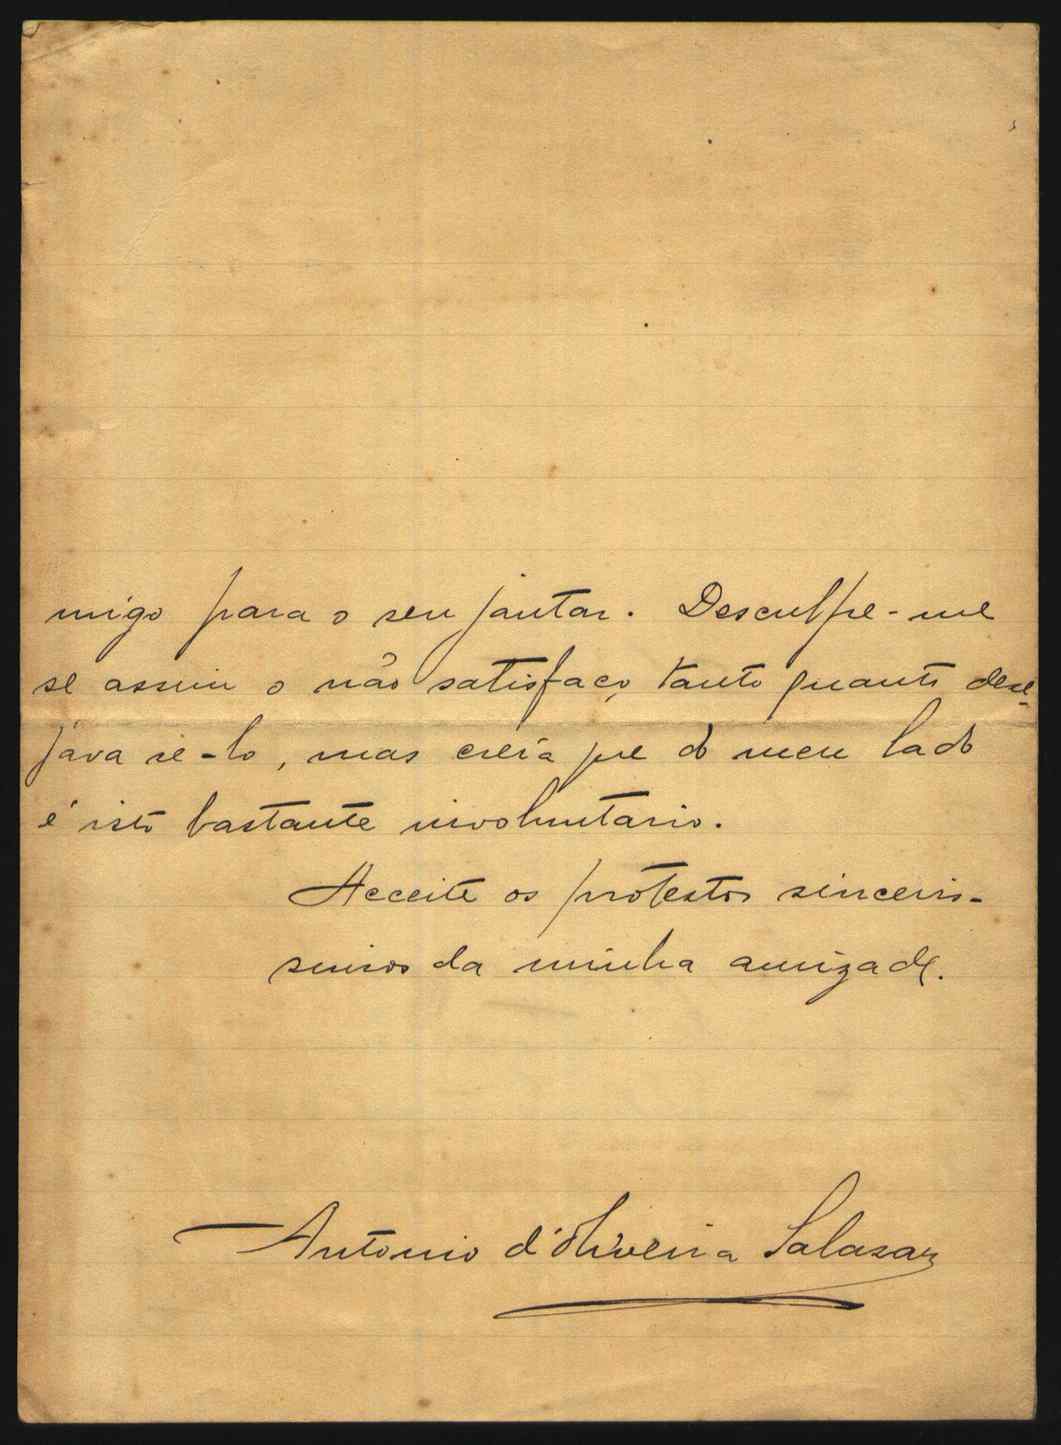 migo para o seu jantar. Desculpe-me
se assim o não satisfaço tanto quanto dese-
java sê-lo, mas creia que do meu lado
é isto bastante involuntario.
Acceite os protestos sinceris-
simos da minha amizade.
Antonio d'Oliveira Salazar